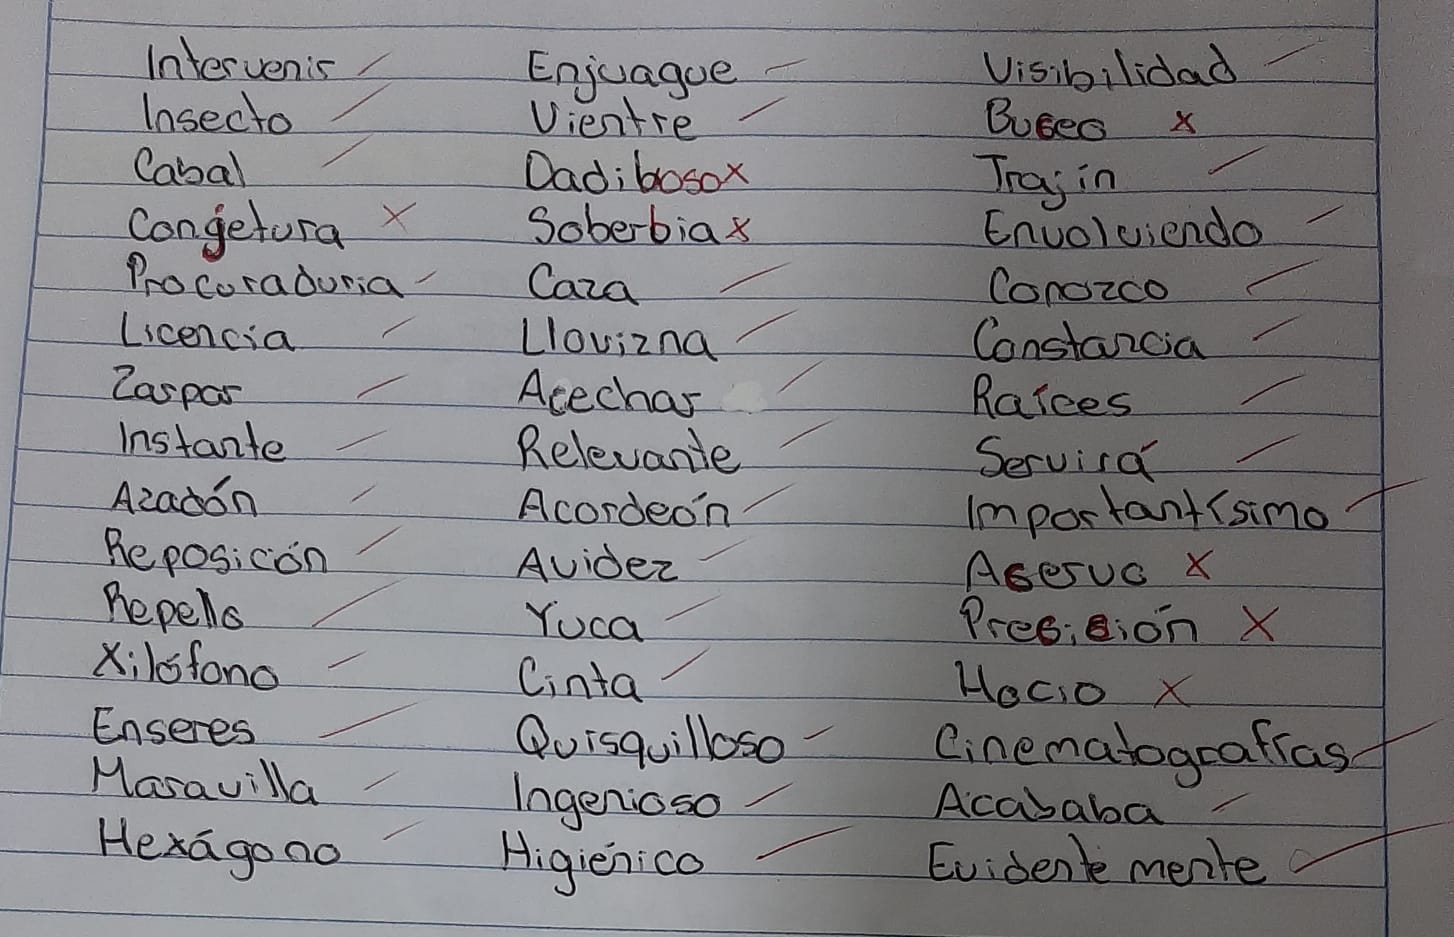 Intervenir Enjuague Visibilidad
Insecto Vientre Buseo x
Cabal Dadiboso x Trajin
Congetura x Soberbia x Envolviendo
Procuraduria Caza Conozco
Licencia Llovizna Constancia
Zarpar Acechar Raíces
Instante Relevante Servirá
Azadón Acordeón Importantísimo
Reposición Avidez x
Repello Yuca x
Xilófono Cinta Hocio x
Enseres Quisquilloso Cinematografías
Maravilla Ingenioso Acababa
Hexágono Higiénico Evidentemente